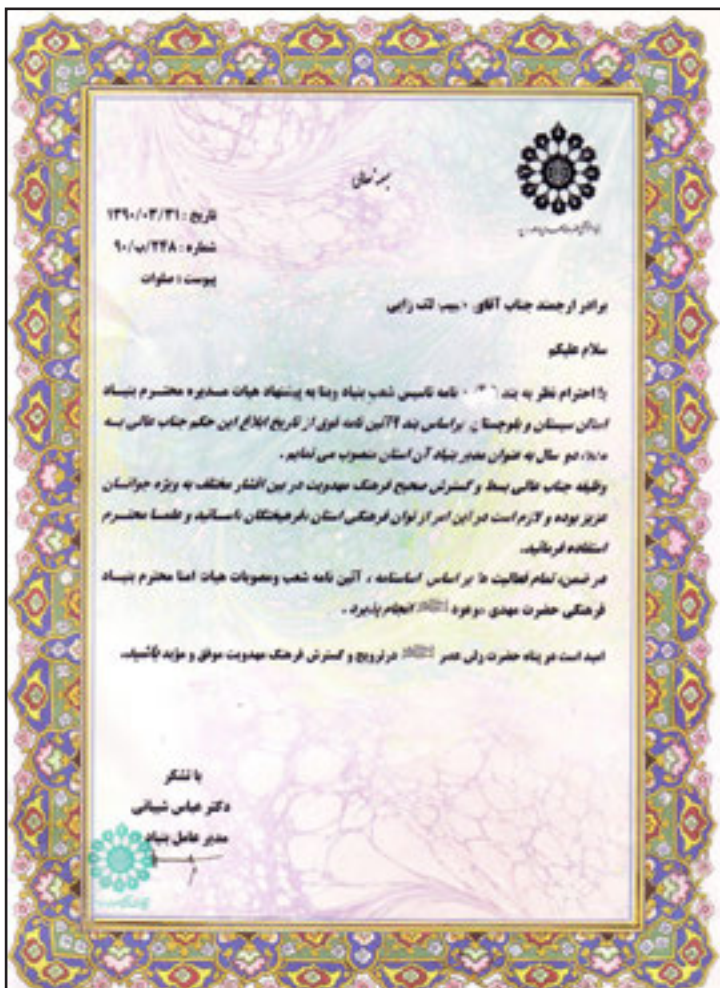 بسمه تعالی
تاریخ : ۱۳۹۰/۰۳/۳۱
شماره : ۲۴۸/ب/۹۰
پیوست : صلوات
برادر ارجمند جناب آقای حبیب لک زایی
سلام علیکم
با احترام نظر به بند نامه تاسیس شعب بنیاد وبنا به پیشنهاد هیات مـدیره محتـرم بنیـاد
استان سیستان و بلوچستان براساس بند ۹آئین نامه فوق از تاریخ ابلاغ این حکم جناب عالی بـه
مدت دو سال به عنوان مدیر بنیاد آن استان منصوب می نمایم .
وظیفه جناب عالی بسط و گسترش صحیح فرهنگ مهدویت در بین اقشار مختلف به ویژه جوانـان
عزیز بوده و لازم است در این امر از توان فرهنگی استان ،فرهیختگان ،اسـاتید و علمـا محتـرم
استفاده فرمائید.
در ضمن، تمام فعالیت ها بر اساس اساسنامه ، آئین نامه شعب ومصوبات هیات امنا محترم بنیـاد
فرهنگی حضرت مهدی موعود انجام پذیرد .
امید است در پناه حضرت ولی عصر درترویج و گسترش فرهنگ مهدویت موفق و مؤید باشید.
با تشکر
دکتر عباس شیبانی
مدیر عامل بنیاد